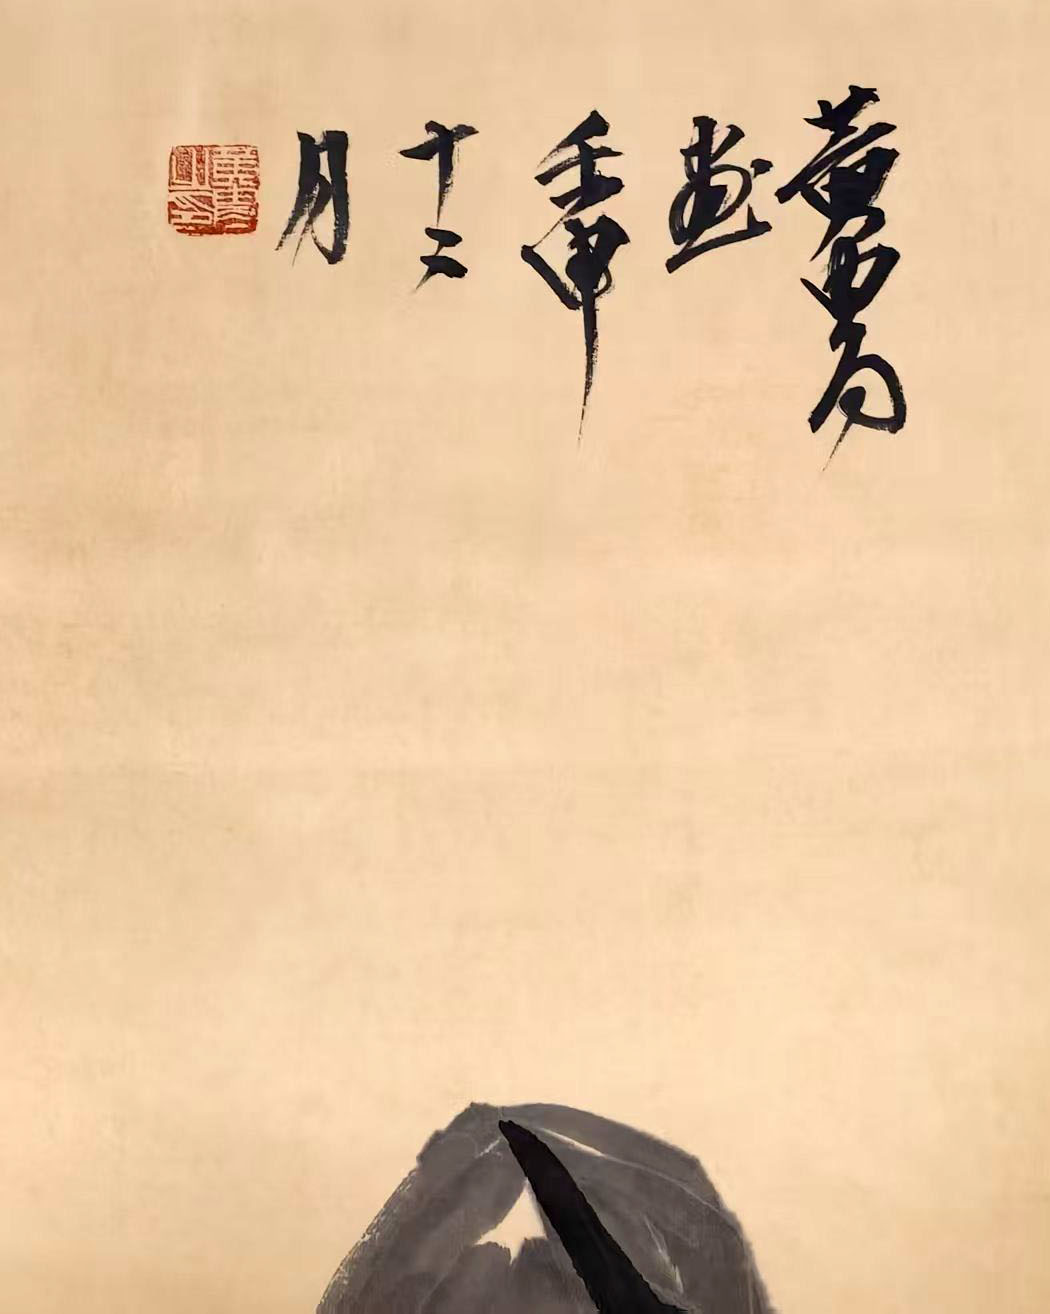 黄胄
画
壬申
十二
月